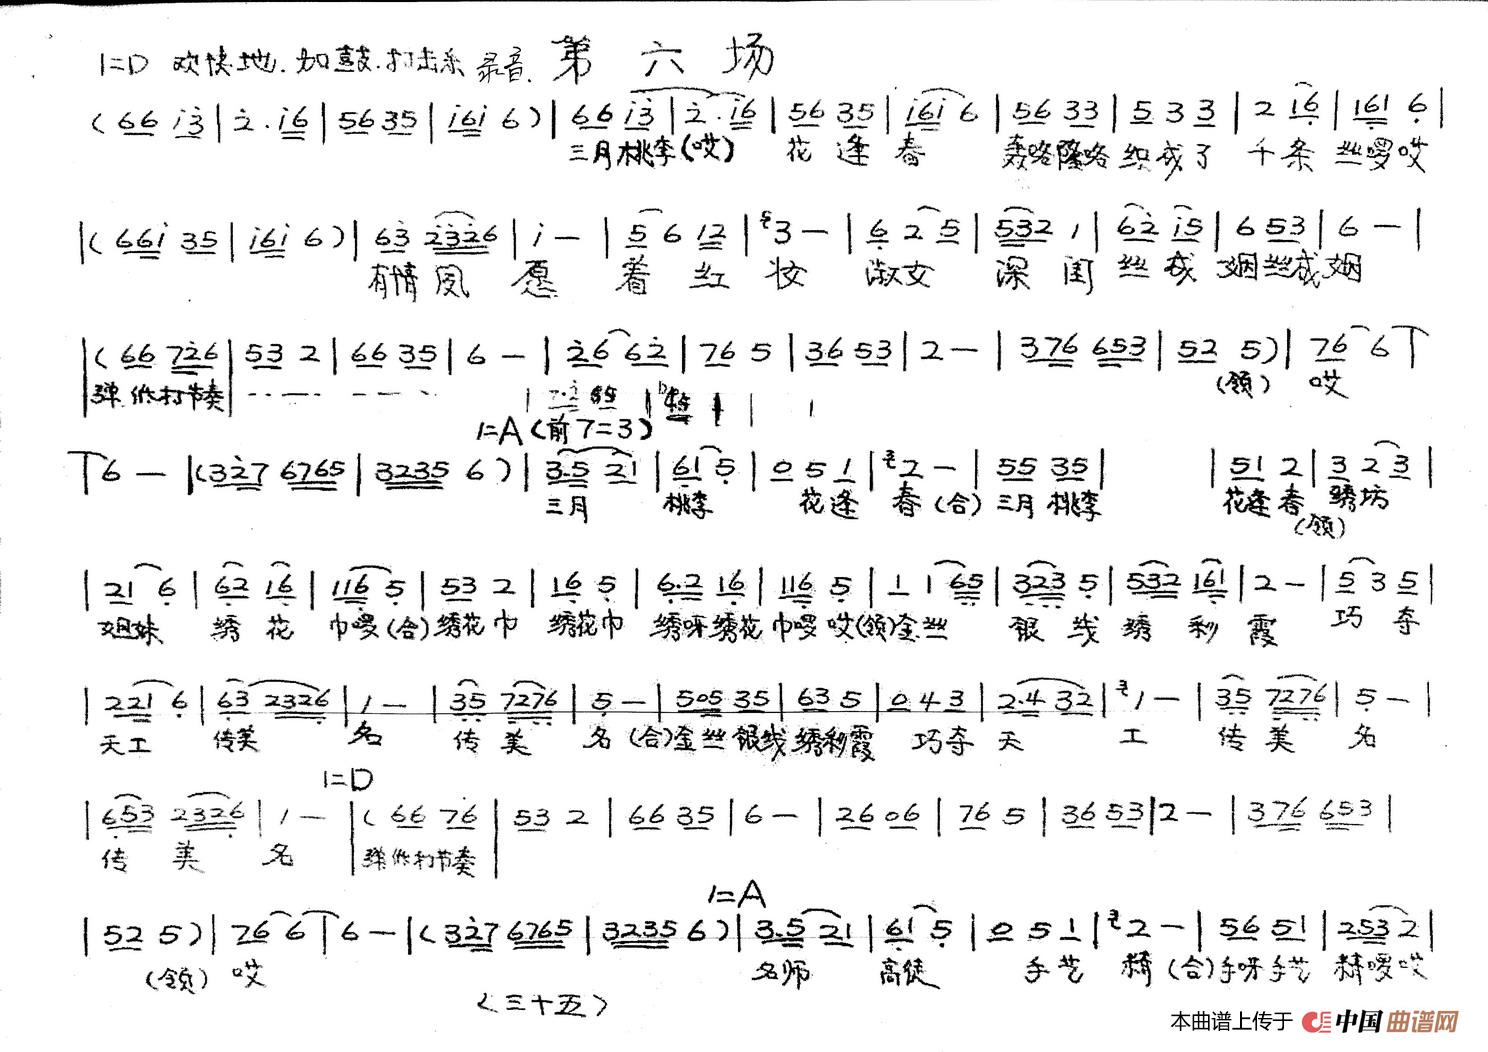 1=D 欢快地.加鼓.打击乐 录音. 第 六 场
(66 i3|2.i6|5635|i6i 6)|66 i3|2.i6|56 35|i6i 6|56 33|5 3 3|2 i6|161 6|
三月桃李(哎) 花 逢 春 轰咯隆咯 织成了 千条 丝啰哎
|(66i 35|i6i 6)|63 2326|i —|5 6 12|3 —|6 2 5|532 1|62 i5|6 53|6 —|
有情 凤 愿 着 红 妆 淑女 深 闺 丝 成 姻丝成姻
|(66 726|53 2|66 35|6 —|26 62|76 5|36 53|2 —|376 653|52 5)|76 6|
弹 伴打节奏 (领) 哎
1=A(前7=3)
6 —|(327 6765|3235 6)|3.5 21|61 5|0 5 1|2 —|55 35| |51 2|3 2 3|
三月 桃李 花逢 春 (合) 三月 桃李 花逢春 绣坊
(领)
|21 6|62 16|116 5|53 2|16 5|6.2 16|116 5|1 1 65|323 5|532 161|2 —|5 3 5|
姐妹 绣 花 巾啰(合)绣花巾 绣花巾 绣呀绣花 巾啰 哎(领)金丝 银 线 绣 彩 霞 巧 夺
|221 6|63 2326|1 —|35 7276|5 —|505 35|63 5|0 4 3|2.4 32|1 —|35 7276|5 —|
天工 传美 名 传 美 名 (合)金丝 银线 绣彩霞 巧夺 天 工 传 美 名
1=D
|653 2326|1 —|(66 76|53 2|66 35|6 —|26 06|76 5|36 53|2 —|376 653|
传 美 名 弹伴打节奏
1=A
|52 5)|76 6|6 —|(327 6765|3235 6)|3.5 21|61 5|0 5 1|2 —|56 51|253 2|
(领) 哎 名师 高徒 手艺 精 (合)手呀手艺 精啰哎
(三十五)
本曲谱上传于 中国曲谱网